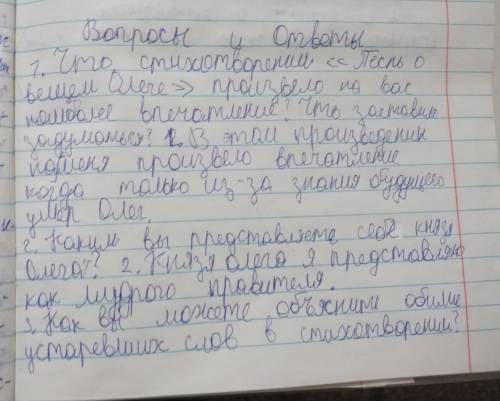 Вопросы и Ответы
1. Что стихотворении << Песнь о
вещем Олеге>> произвело на вас
наиболее впечатление? Что заставило
задуматься? 1. В этом произведении
на меня произвело впечатление
когда только из-за знания будущего
умер Олег.
2. Каким вы представляете себе князя
Олега? 2. Князя Олега я представляю
как мудрого правителя.
3. Как вы можете объяснить обилие
устаревших слов в стихотворении?